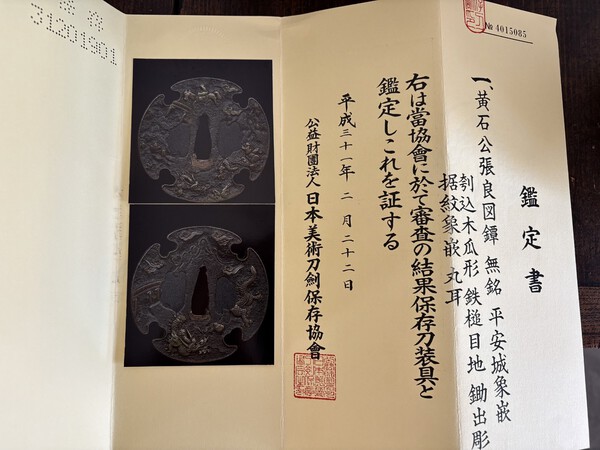 № 4015085
鑑定書
一、黄石公張良図鐔 無銘 平安城象嵌
刳込木瓜形 鉄槌目地 鋤出彫
据紋象嵌 丸耳
右は當協會に於て審査の結果保存刀装具と
鑑定しこれを証する
平成三十一年二月二十二日
公益財團法人 日本美術刀劍保存協會
31201901